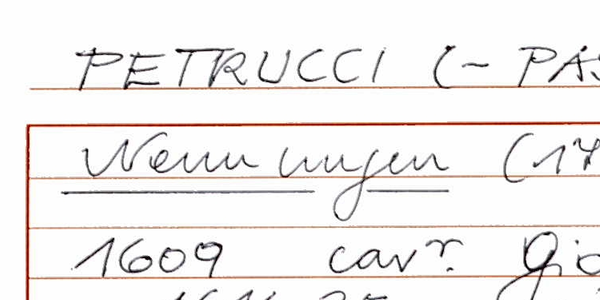 PETRUCCI (- PAS
Nennungen (17
1609 cavr. Gio